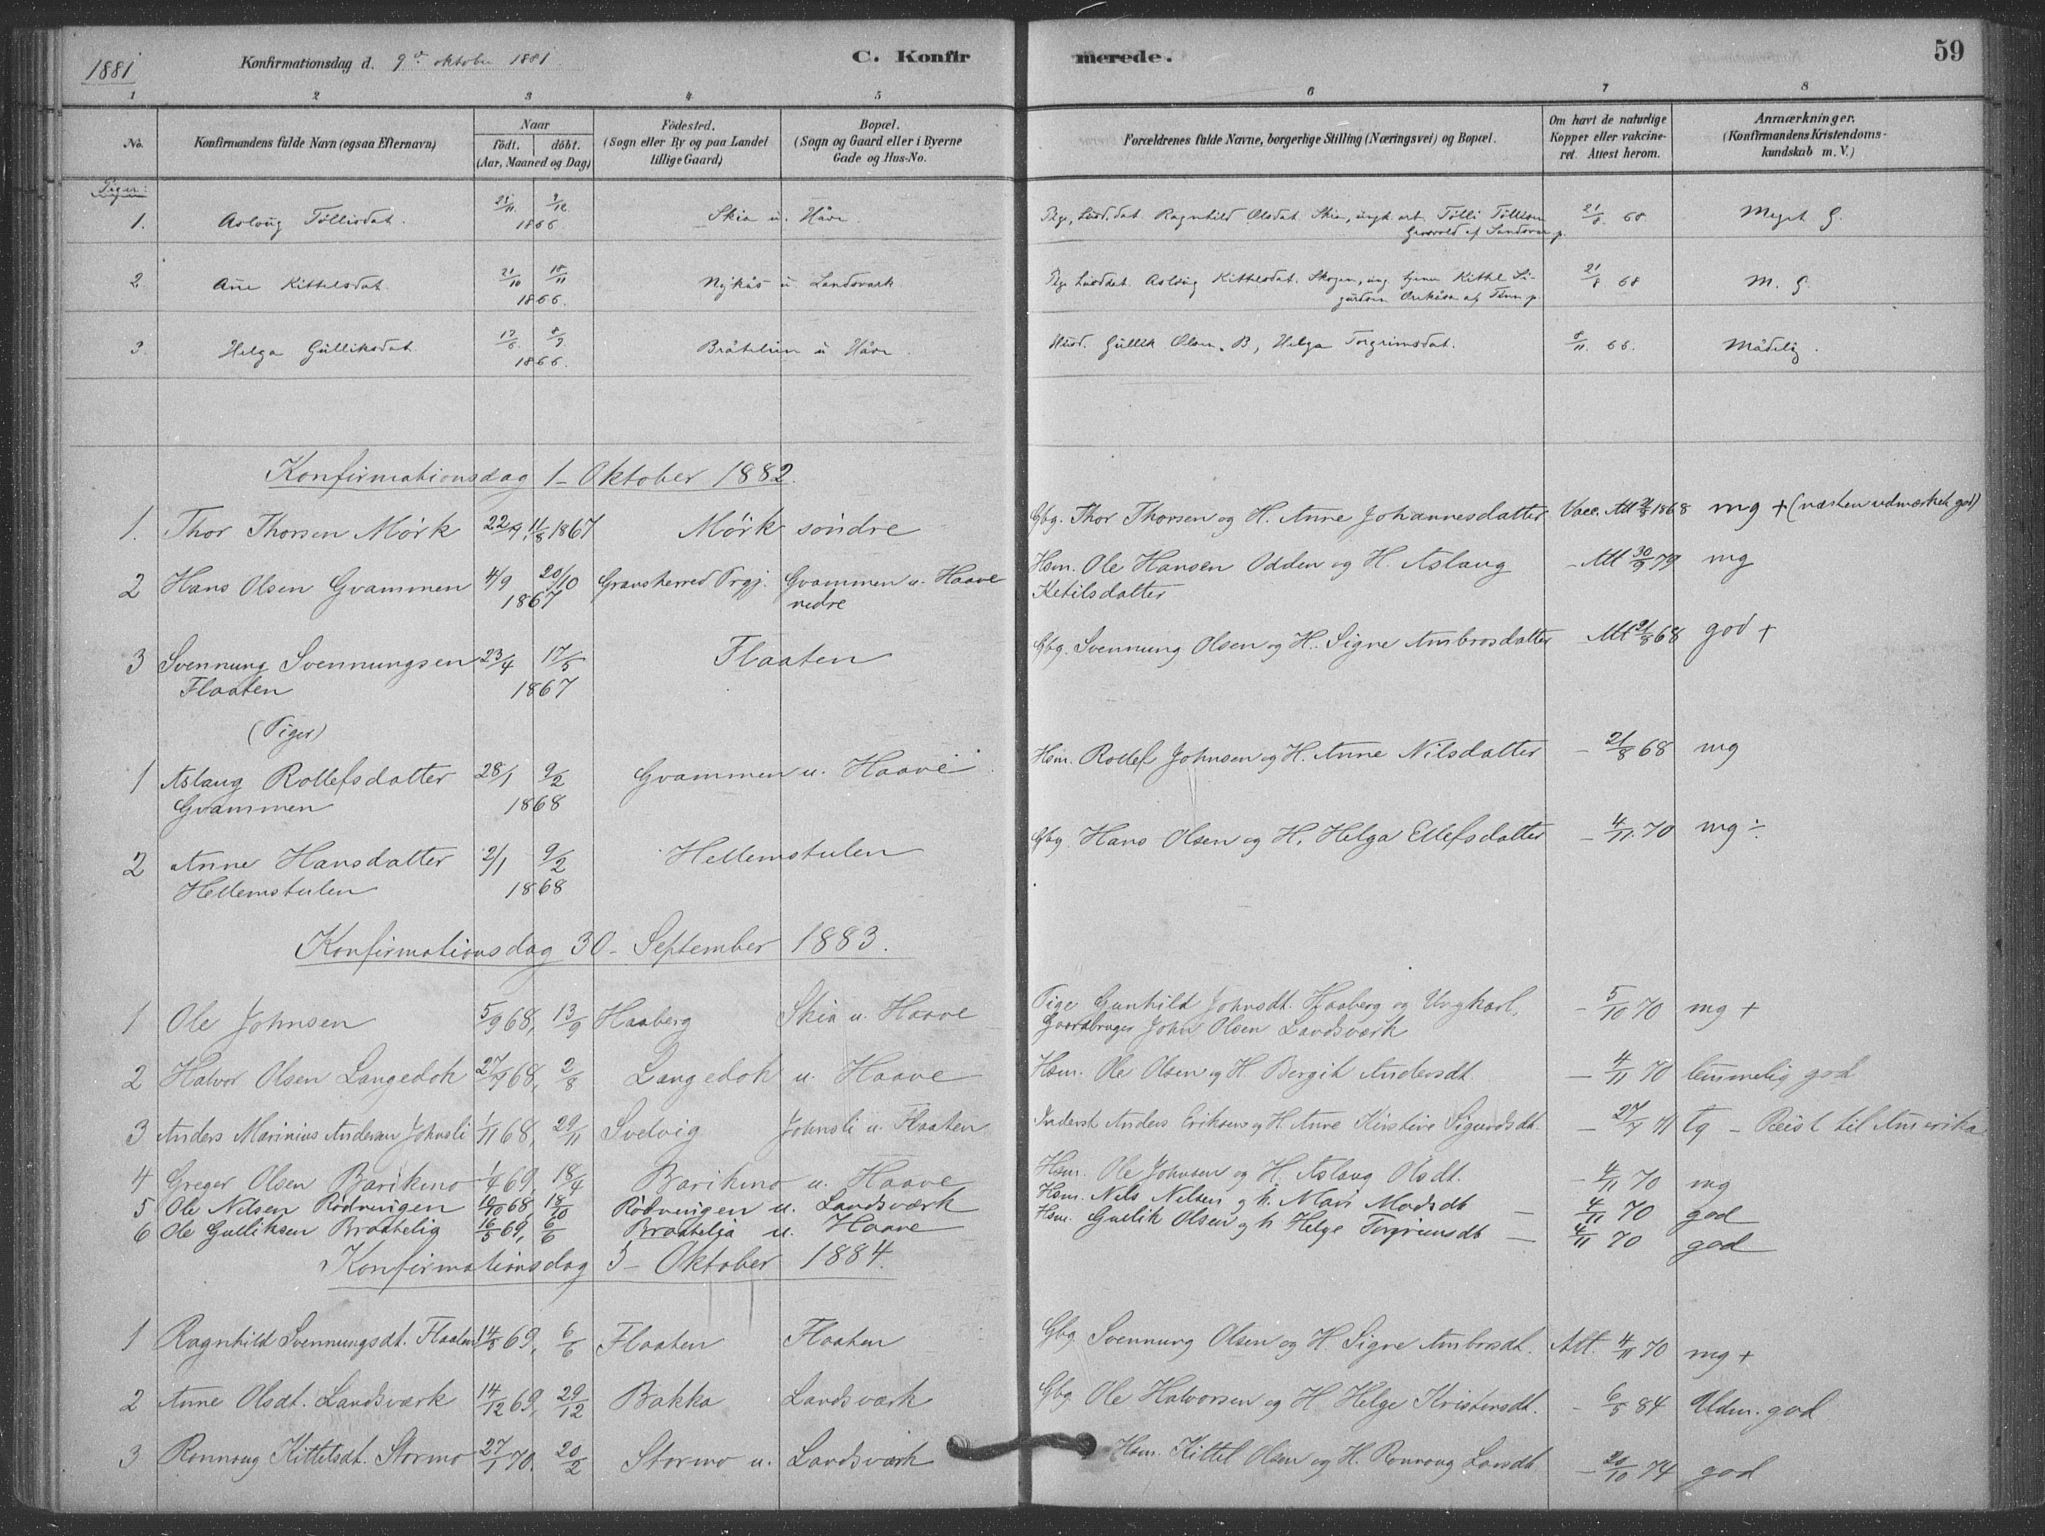 1881 Konfirmationsdag d. 9de oktober 1881. C. Konfirmerede. 59
1 2 3 4 5 6 7 8
No. Konfirmandens fulde Navn (ogsaa Efternavn) Naar födt. döbt. (Aar, Maaned og Dag) Födested. (Sogn eller By og paa Landet tillige Gaard) Bopæl. (Sogn og Gaard eller i Byerne Gade og Hus-No. Forældrenes fulde Navne, borgerlige Stilling (Næringsvei) og Bopæl. Om havt de naturlige Kopper eller vakcineret. Attest herom. Anmærkninger. (Konfirmandens Kristendomskundskab m. V.)
Piger:
1. Asloug Töllisdat. 1866 Skia u. Håve Pige, Ragnhild Olsdat. Skia, ungk. Tölli Töllisen 21/8 68 Meget G.
2. Ane Kittelsdat. 21/10 18/11 1866. Nykås u. Landsverk Pige Aslaug Kittelsdat. Skogen, ung Kittel Si- 21/8 68 M. G.
3. Helga Gulliksdat. 1866. Bråtelien u Håve Husd. Gullik Olsen B, Helga Torgrimsdat. 8/11 66. Mådelig.
Konfirmationsdag 1- Oktober 1882.
1. Thor Thorsen Mörk 22/7, 11/8 1867 Mörk söndre Gbg. Thor Thorsen og H. Anne Johannesdatter Vacc. Att 21/8 1868 mg + (næsten udmærket god)
2 Hans Olsen Gvammen 4/9 20/10 Gransherred Prgj. Gvammen u. Haave Hsm. Ole Hansen Odden og H. Aslaug - Att 30/9 79 mg
1867 nedre Ketilsdatter
3 Svennung Svennungsen 23/4 17/5 Flaaten Gbg. Svennung Olsen og H. Signe Ambrosdatter - Att 21/8 68 god +
Flaaten 1867
(Piger)
1 Aslaug Rollefsdatter 28/1 9/2 Gvammen u. Haave Hsm. Rollef Johnsen og H. Anne Nilsdatter - 21/8 68 mg
Gvammen 1868
2 Anne Hansdatter 2/1 9/2 Hellemstulen Gbg Hans Olsen og H. Helga Ellefsdatter - 4/11 70 mg ÷
Hellemstulen 1868
Konfirmationsdag 30- September 1883.
1 Ole Johnsen 5/9 68, 13/9 Haaberg Skia u. Haave Pige Gunhild Johnsdt. Haaberg og Ungkarl, - 5/10 70 mg +
Gaardbruger John Olsen Landsværk
2 Halvor Olsen Langedok 27/7 68, 2/8 Langedok u. Haave Hsm. Ole Olsen og H. Bergit Andersdt. - 4/11 70 temmelig god
3 Anders Marinius Andersen Johnsli 1/11 68, 29/11 Svelvig Johnsli u. Flaaten Inderst Anders Eriksen og H. Anne Kirstine Sigurdsdt. - 27/7 71 tg - Reist til Amerika
4 Greger Olsen Barikmo 1/4 69, 18/4 Barikmo u. Haave Hsm. Ole Johnsen og H. Aslaug Olsdt. - 4/11 70 mg
5 Ole Nilsen Rödningen 10/10 68, 18/10 Rödningen u. Landsværk Hsm. Nels Nelsen og h. Mari Madsdt - 4/11 70 god
6 Ole Gulliksen Braatelig 16/5 69, 6/6 Braatelia u. Haave Hsm. Gullik Olsen og h Helge Torgrimsdt - 4/11 70 god
Konfirmationsdag 5- Oktober 1884.
1 Ragnhild Svennungsdt. Flaaten 14/5 69, 6/6 Flaaten Flaaten Gbg Svennung Olsen og H. Signe Ambrosdt. Att. 4/11 70 mg +
2 Anne Olsdt. Landsværk 14/12 69, 29/12 Bakka Landsværk Gbg Ole Halvorsen og H. Helge Kristensdt. - 6/5 84 Udm. god
3 Ronnoug Kittelsdt. Stormo 27/1 70. 20/2 Stormo u. Landsværk Hsm. Kittel Olsen og H. Ronnoug Larsdt - 20/10 74 god